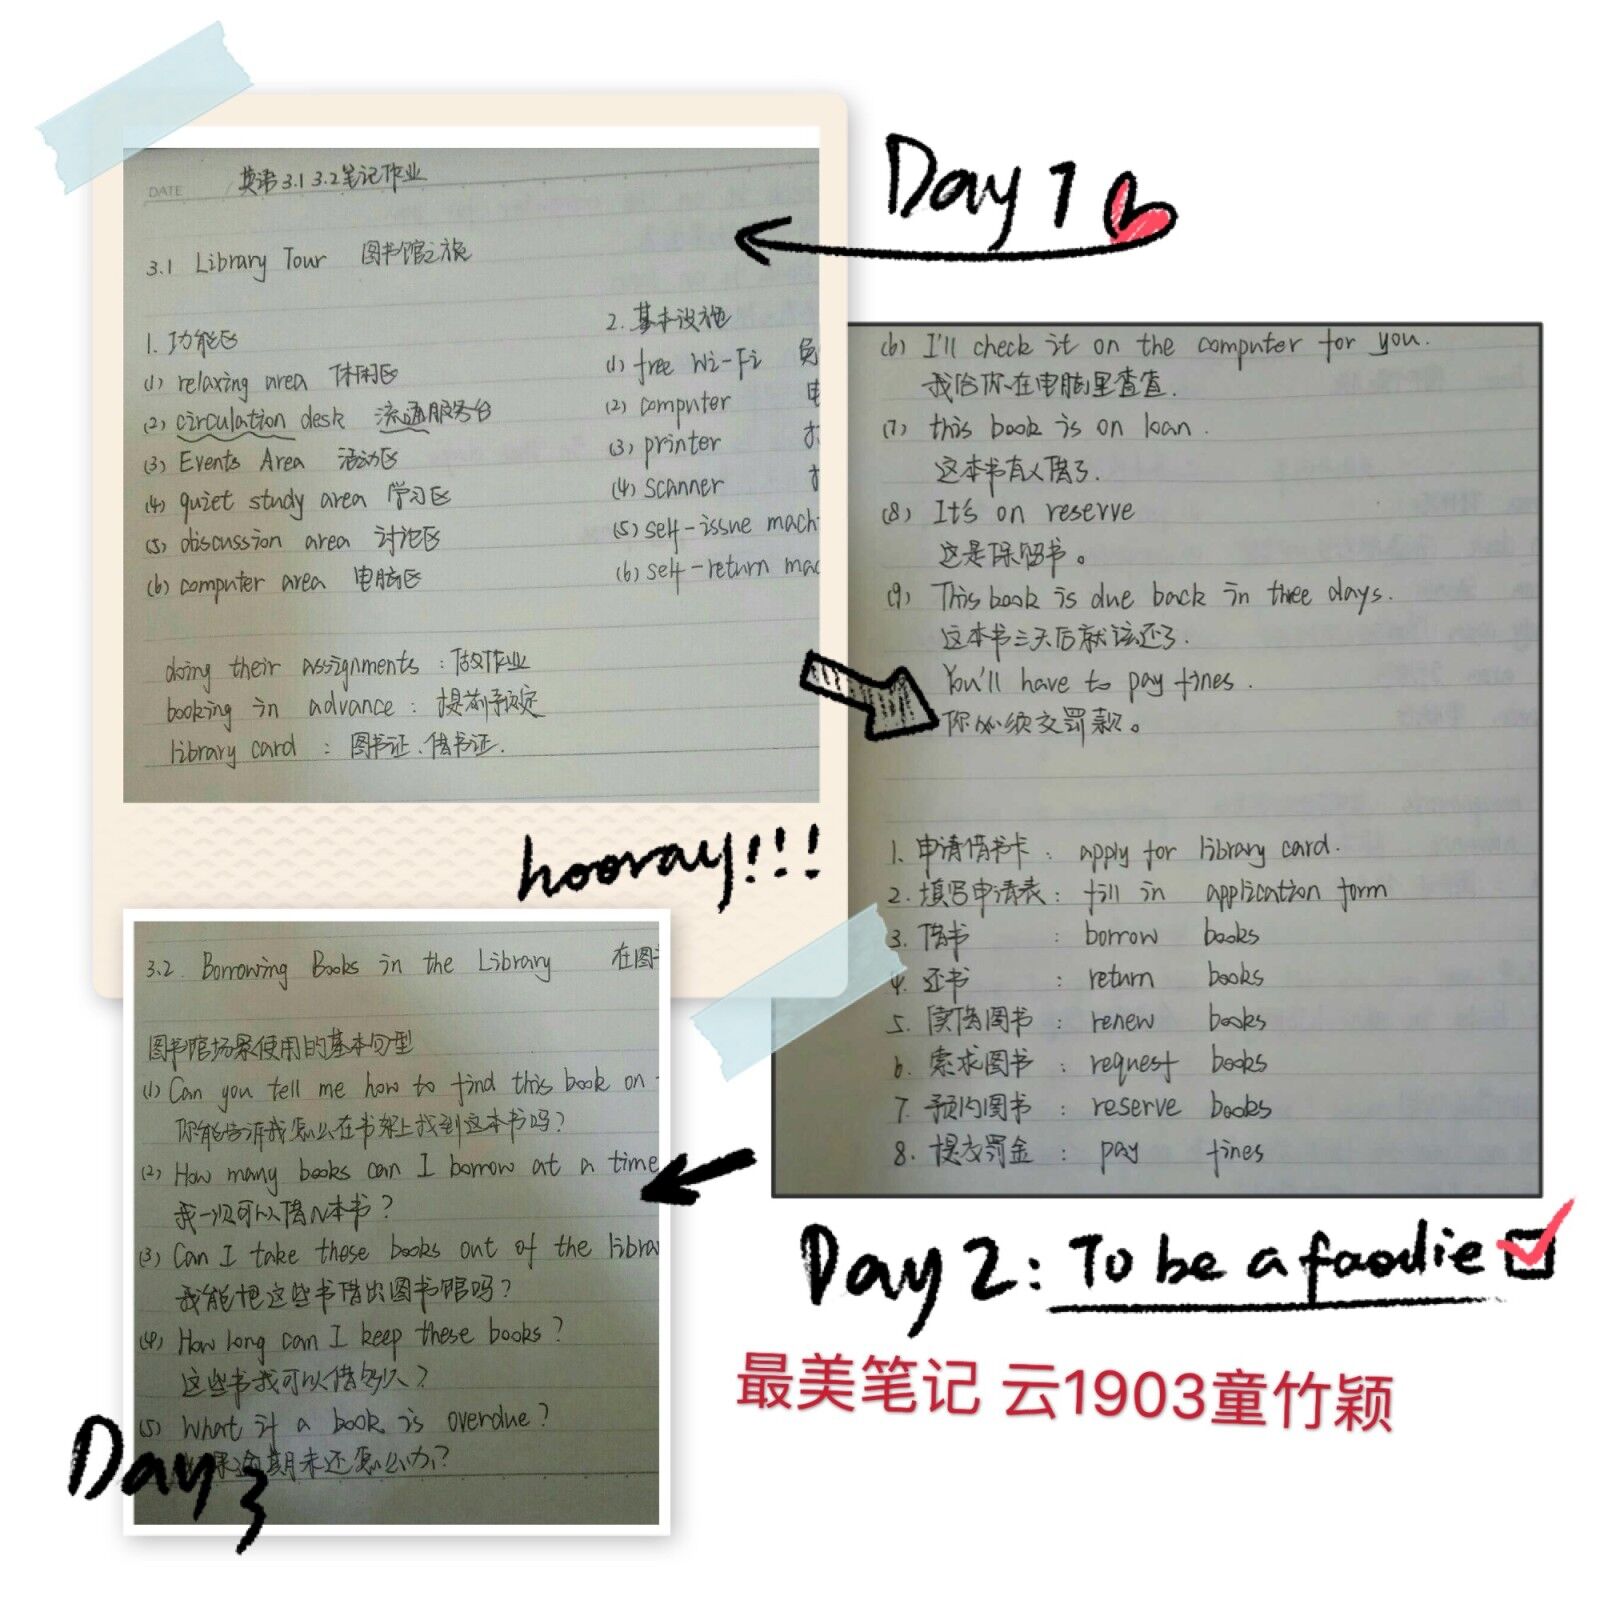 Day 1
DATE
英语3.1 3.2笔记作业
3.1 Library Tour 图书馆之旅
1. 功能区
(1) relaxing area 休闲区
(2) circulation desk 流通服务台
(3) Events Area 活动区
(4) quiet study area 学习区
(5) discussion area 讨论区
(6) computer area 电脑区
2. 基本设施
(1) free Wi-Fi 免
(2) computer 电
(3) printer 打
(4) scanner
(5) self-issue mach
(6) self-return mac
doing their assignments : 做作业
booking in advance : 提前预定
library card : 图书证、借书证.
hooray!!!
(6) I'll check it on the computer for you.
我给你在电脑里查查.
(7) this book is on loan.
这本书有人借了.
(8) It's on reserve
这是保留书。
(9) This book is due back in three days.
这本书三天后就该还了.
You'll have to pay fines.
你必须交罚款。
1. 申请借书卡 : apply for library card.
2. 填写申请表 : fill in application form
3. 借书 : borrow books
4. 还书 : return books
5. 续借图书 : renew books
6. 索求图书 : request books
7. 预约图书 : reserve books
8. 提交罚金 : pay fines
Day 2: To be a foodie
最美笔记 云1903童竹颖
3.2. Borrowing Books in the Library 在图书
图书馆场景使用的基本句型
(1) Can you tell me how to find this book on
你能告诉我怎么在书架上找到这本书吗?
(2) How many books can I borrow at a time
我一次可以借几本书?
(3) Can I take these books out of the libra
我能把这些书借出图书馆吗?
(4) How long can I keep these books?
这些书我可以借多久?
(5) What if a book is overdue?
如果逾期未还怎么办?
Day 3